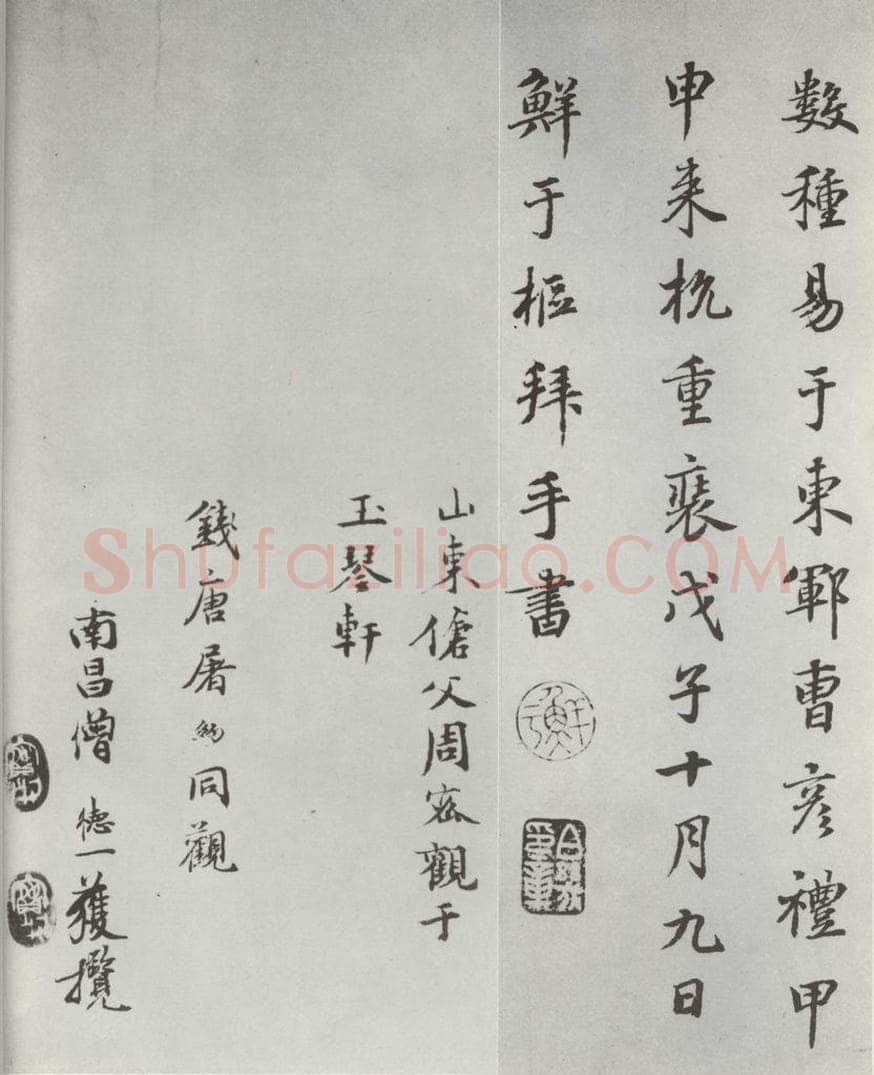 数種易于東鄆曹彦禮甲
申来杭重裝戊子十月九日
鮮于樞拜手書
山東傖父周密觀于
玉琴軒
錢唐屠約同觀
南昌僧德一獲攬
Shufaziliao.COM